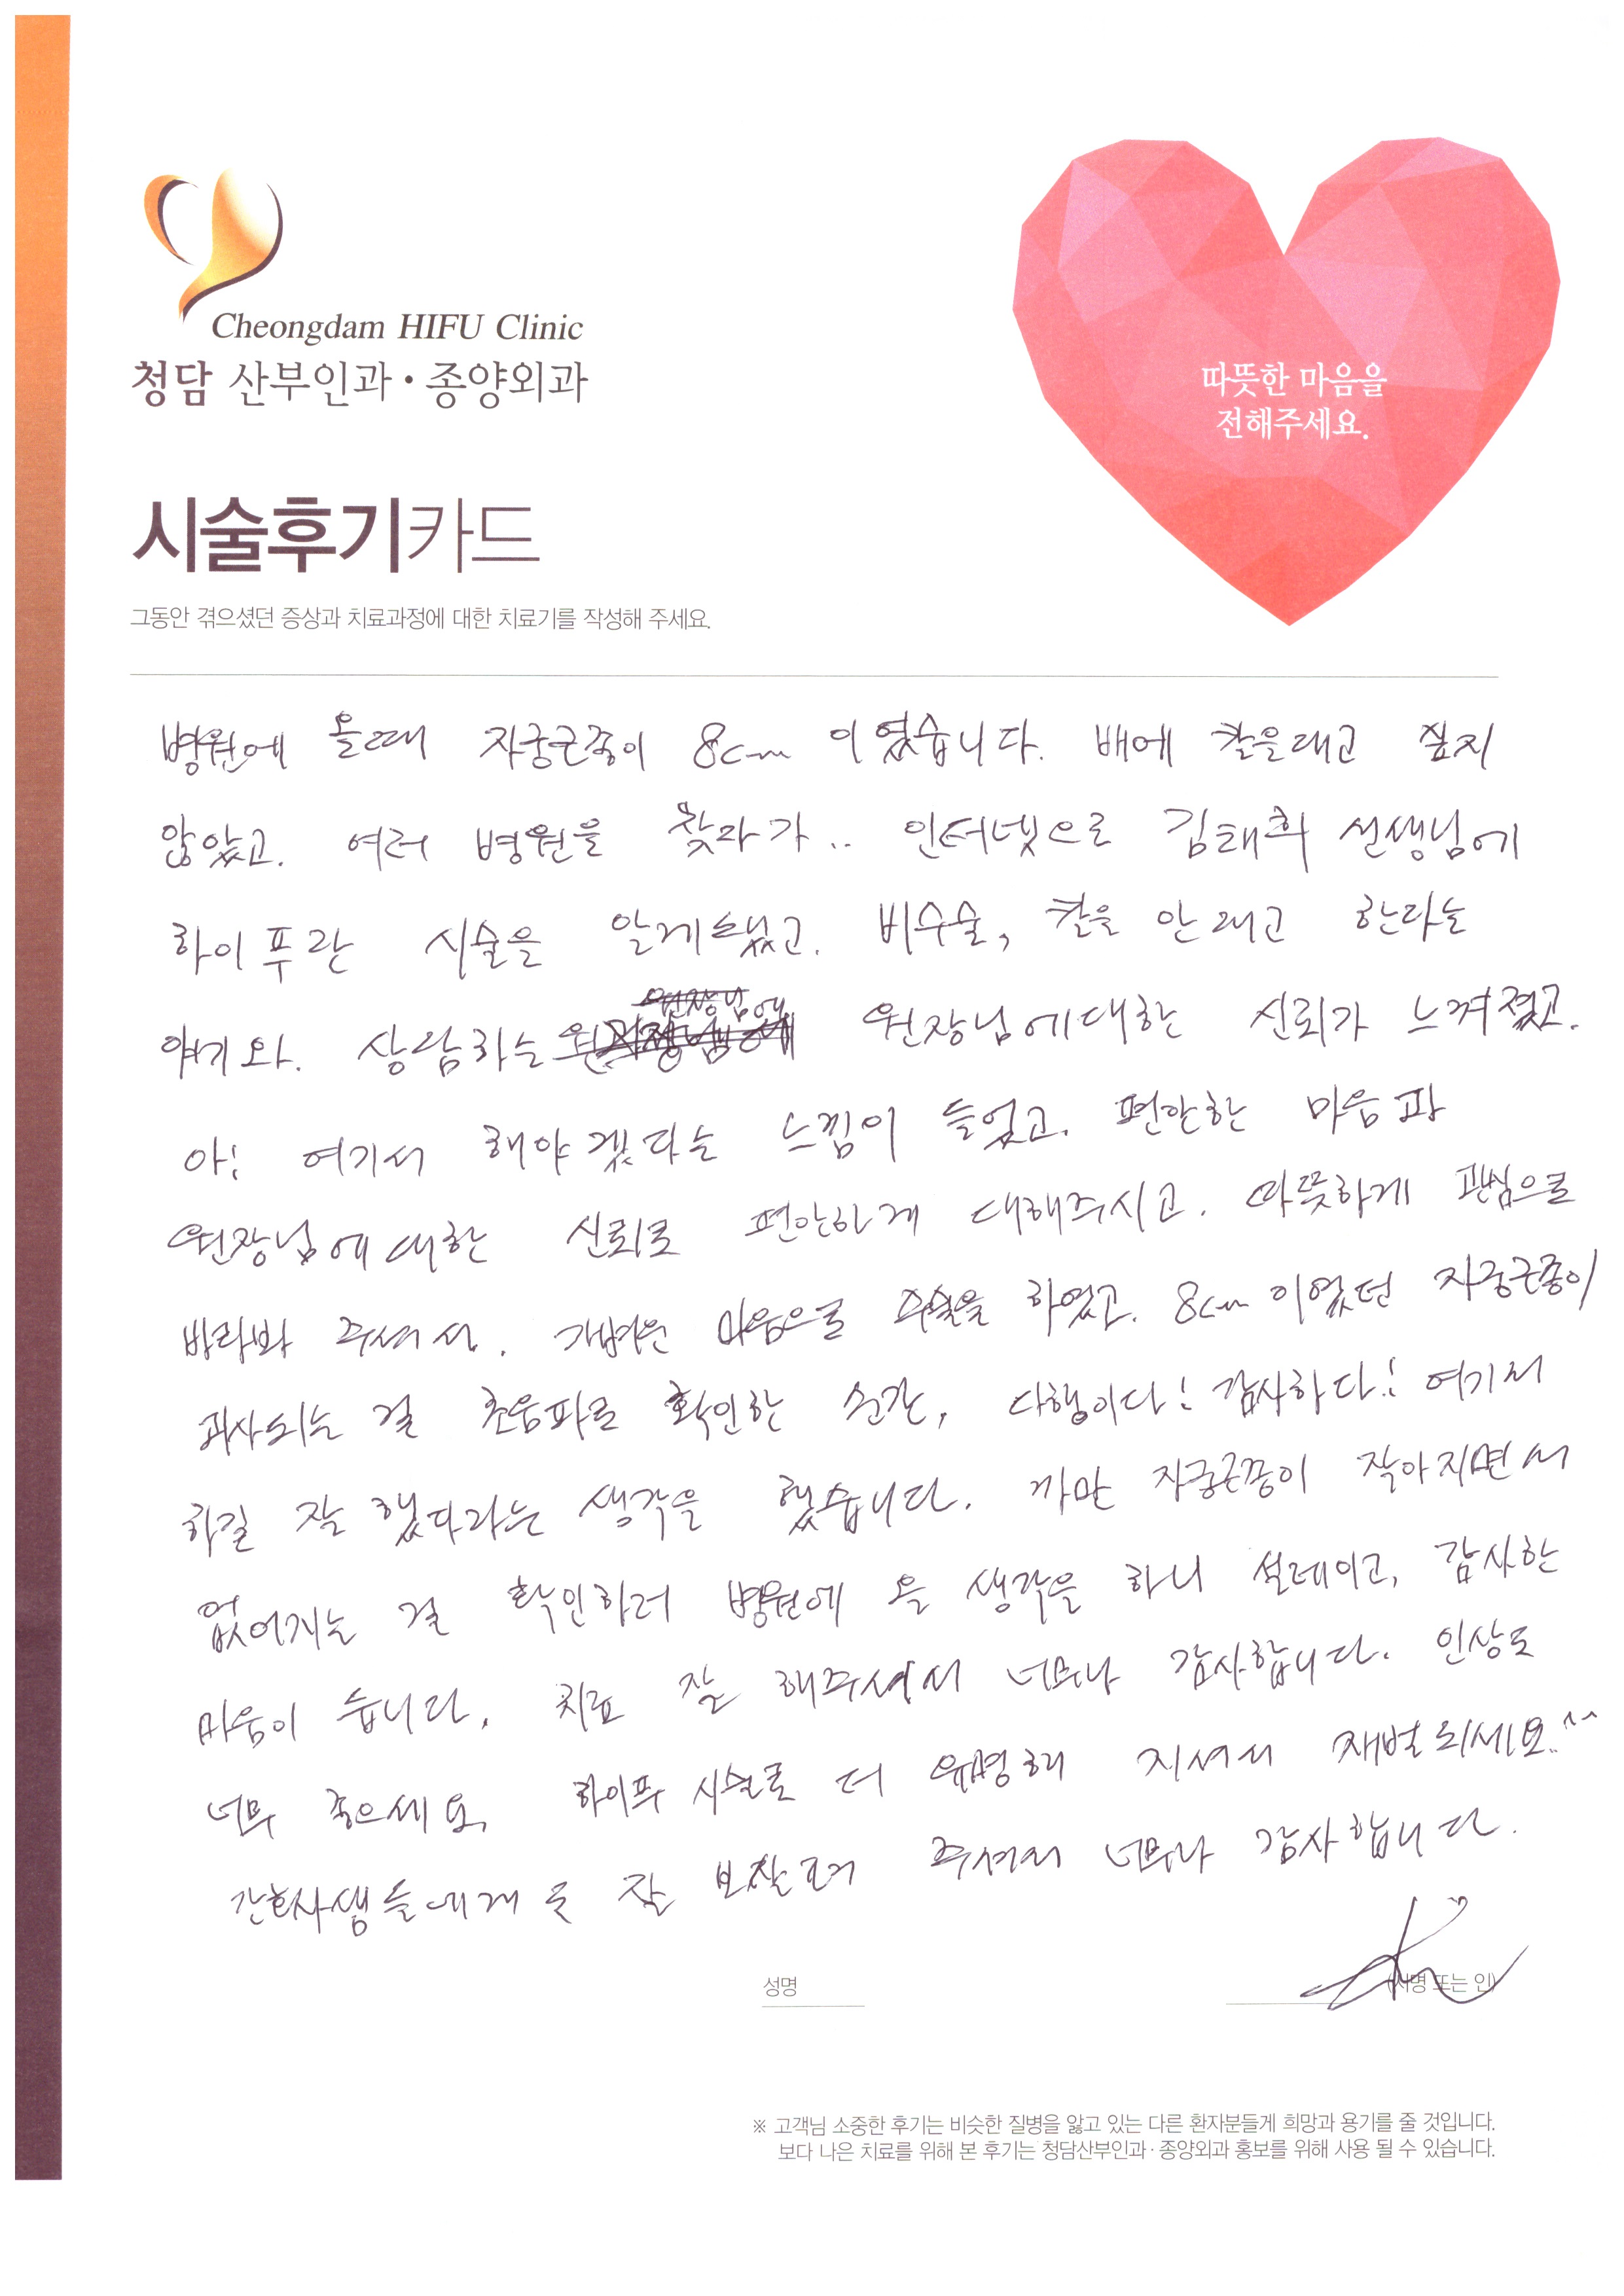 Cheongdam HIFU Clinic
청담 산부인과·종양외과
따뜻한 마음을
전해주세요.
시술후기카드
그동안 겪으셨던 증상과 치료과정에 대한 치료기를 작성해 주세요.
병원에 올때 자궁근종이 8cm 이였습니다. 배에 칼을대고 싶지
않았고. 여러 병원을 찾다가.. 인터넷으로 김태희 선생님에
하이푸란 시술을 알게됐고. 비수술, 칼을 안대고 한다는
얘기와. 상담하는 원장님에대한 신뢰가 느껴졌고.
아! 여기서 해야겠다는 느낌이 들었고. 편안한 마음과
원장님에대한 신뢰로 편안하게 대해주시고. 따뜻하게 관심으로
바라봐 주셔서. 가벼운 마음으로 수술을 하였고. 8cm 이였던 자궁근종이
괴사되는 걸 초음파로 확인한 순간, 다행이다! 감사하다! 여기서
하길 잘 했다라는 생각을 했습니다. 까만 자궁근종이 작아지면서
없어지는 걸 확인하러 병원에 올 생각을 하니 설레이고, 감사한
마음이 듭니다. 치료 잘 해주셔서 너무나 감사합니다. 인상도
너무 좋으세요. 하이푸 시술로 더 유명해 지셔서 재벌되세요.^^
간호사샘들에게도 잘 보살펴 주셔서 너무나 감사합니다.
성명 (서명 또는 인)
※ 고객님 소중한 후기는 비슷한 질병을 앓고 있는 다른 환자분들게 희망과 용기를 줄 것입니다.
보다 나은 치료를 위해 본 후기는 청담산부인과·종양외과 홍보를 위해 사용 될 수 있습니다.